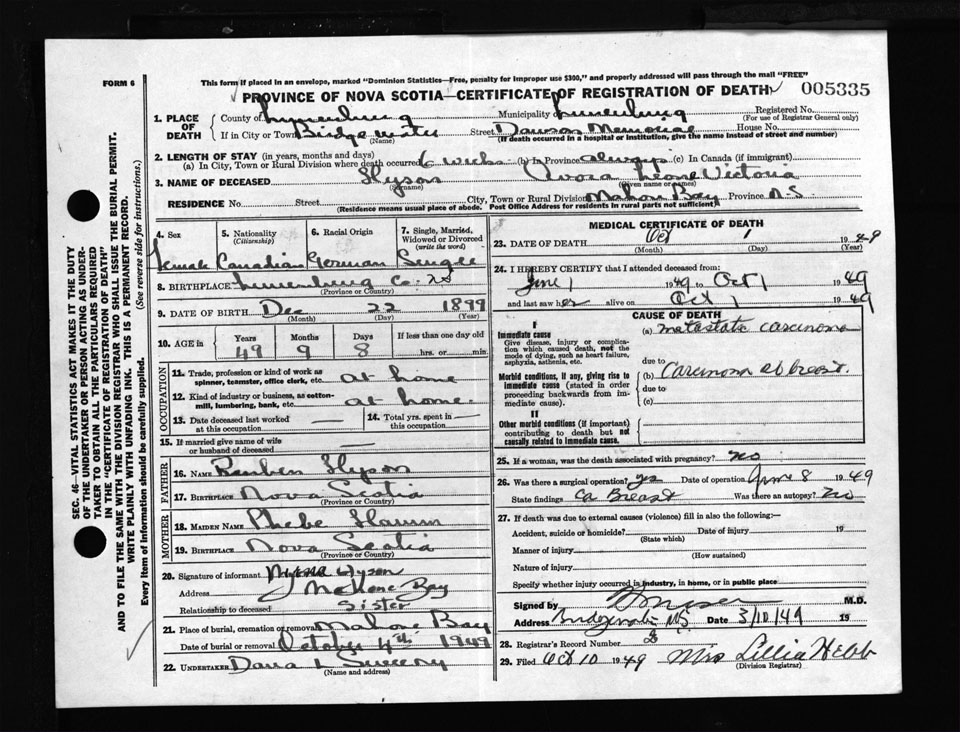 FORM 6
This form if placed in an envelope, marked "Dominion Statistics—Free, penalty for improper use $300," and properly addressed will pass through the mail "FREE"
PROVINCE OF NOVA SCOTIA—CERTIFICATE OF REGISTRATION OF DEATH 005335
1. PLACE OF DEATH
County of Lunenburg Municipality of Lunenburg Registered No.
(For use of Registrar General only)
If in City or Town Bridgewater Street Dawson Memorial House No.
(Name) (If death occurred in a hospital or institution, give the name instead of street and number)
2. LENGTH OF STAY (in years, months and days)
(a) In City, Town or Rural Division where death occurred 6 weeks (b) In Province always (c) In Canada (if immigrant)
3. NAME OF DECEASED Hyson Avora Leone Victoria
(Surname) (Given name or names)
RESIDENCE No. Street City, Town or Rural Division Mahone Bay Province N.S
(Residence means usual place of abode. Post Office Address for residents in rural parts not sufficient)
4. Sex
Female
5. Nationality (Citizenship)
Canadian
6. Racial Origin
German
7. Single, Married, Widowed or Divorced (write the word)
Single
8. BIRTHPLACE Lunenburg Co. NS
(Province or Country)
9. DATE OF BIRTH Dec 22 1899
(Month) (Day) (Year)
10. AGE in Years Months Days If less than one day old
49 9 8 hrs. or min.
OCCUPATION
11. Trade, profession or kind of work as spinner, teamster, office clerk, etc. at home
12. Kind of industry or business, as cotton-mill, lumbering, bank, etc. at home.
13. Date deceased last worked at this occupation —
14. Total yrs. spent in this occupation —
15. If married give name of wife or husband of deceased
FATHER
16. NAME Reuben Hyson
17. BIRTHPLACE Nova Scotia
(Province or Country)
MOTHER
18. MAIDEN NAME Phebe Hamm
19. BIRTHPLACE Nova Scotia
(Province or Country)
20. Signature of informant Hyson
Address Mahone Bay
Relationship to deceased Sister
21. Place of burial, cremation or removal Mahone Bay
Date of burial or removal October 4th 1949
22. UNDERTAKER Dana L Sweeny
(Name and address)
MEDICAL CERTIFICATE OF DEATH
23. DATE OF DEATH Oct 1 1949
(Month) (Day) (Year)
24. I HEREBY CERTIFY that I attended deceased from
June 1 1949 to Oct 1 1949
and last saw her alive on Oct 1 1949
CAUSE OF DEATH
I
Immediate cause
Give disease, injury or complication which caused death, not the mode of dying, such as heart failure, asphyxia, asthenia, etc.
(a) metastatic carcinoma
due to
Morbid conditions, if any, giving rise to immediate cause (stated in order proceeding backwards from immediate cause).
(b) Carcinoma of breast.
due to
(c)
II
Other morbid conditions (if important) contributing to death but not causally related to immediate cause.
25. If a woman, was the death associated with pregnancy? No
26. Was there surgical operation? yes Date of operation June 8 1949
State findings Ca Breast Was there an autopsy? No
27. If death was due to external causes (violence) fill in also the following:—
Accident, suicide or homicide? Date of injury 19
(State which)
Manner of injury
(How sustained)
Nature of injury
Specify whether injury occurred in industry, in home, or in public place
Signed by M.D.
Address Bridgewater NS Date 3/10/49 19
28. Registrar's Record Number
29. Filed Oct 10 1949 Mrs Lillia Hebb
(Division Registrar)
SEC. 46 – VITAL STATISTICS ACT MAKES IT THE DUTY
OF THE UNDERTAKER OR PERSON ACTING AS UNDERTAKER TO OBTAIN ALL THE PARTICULARS REQUIRED
IN THE "CERTIFICATE OF REGISTRATION OF DEATH"
AND TO FILE THE SAME WITH THE DIVISION REGISTRAR WHO SHALL ISSUE THE BURIAL PERMIT.
WRITE PLAINLY WITH UNFADING INK. THIS IS A PERMANENT RECORD.
Every item of information should be carefully supplied. (See reverse side for instructions.)